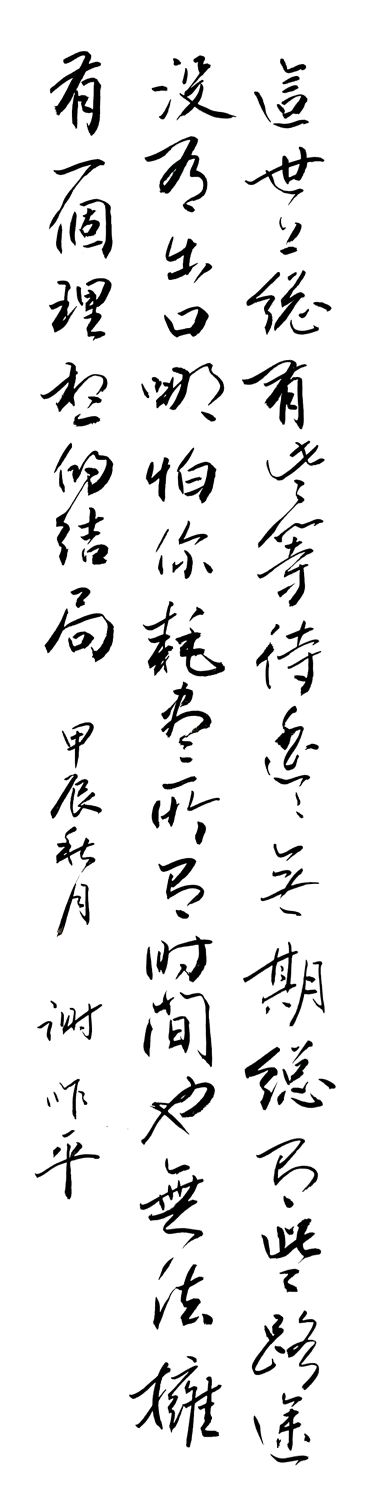 這世上總有些等待遙遙無期總有些路途
沒有出口哪怕你耗盡所有時間也無法擁
有一個理想的結局 甲辰秋月 謝平